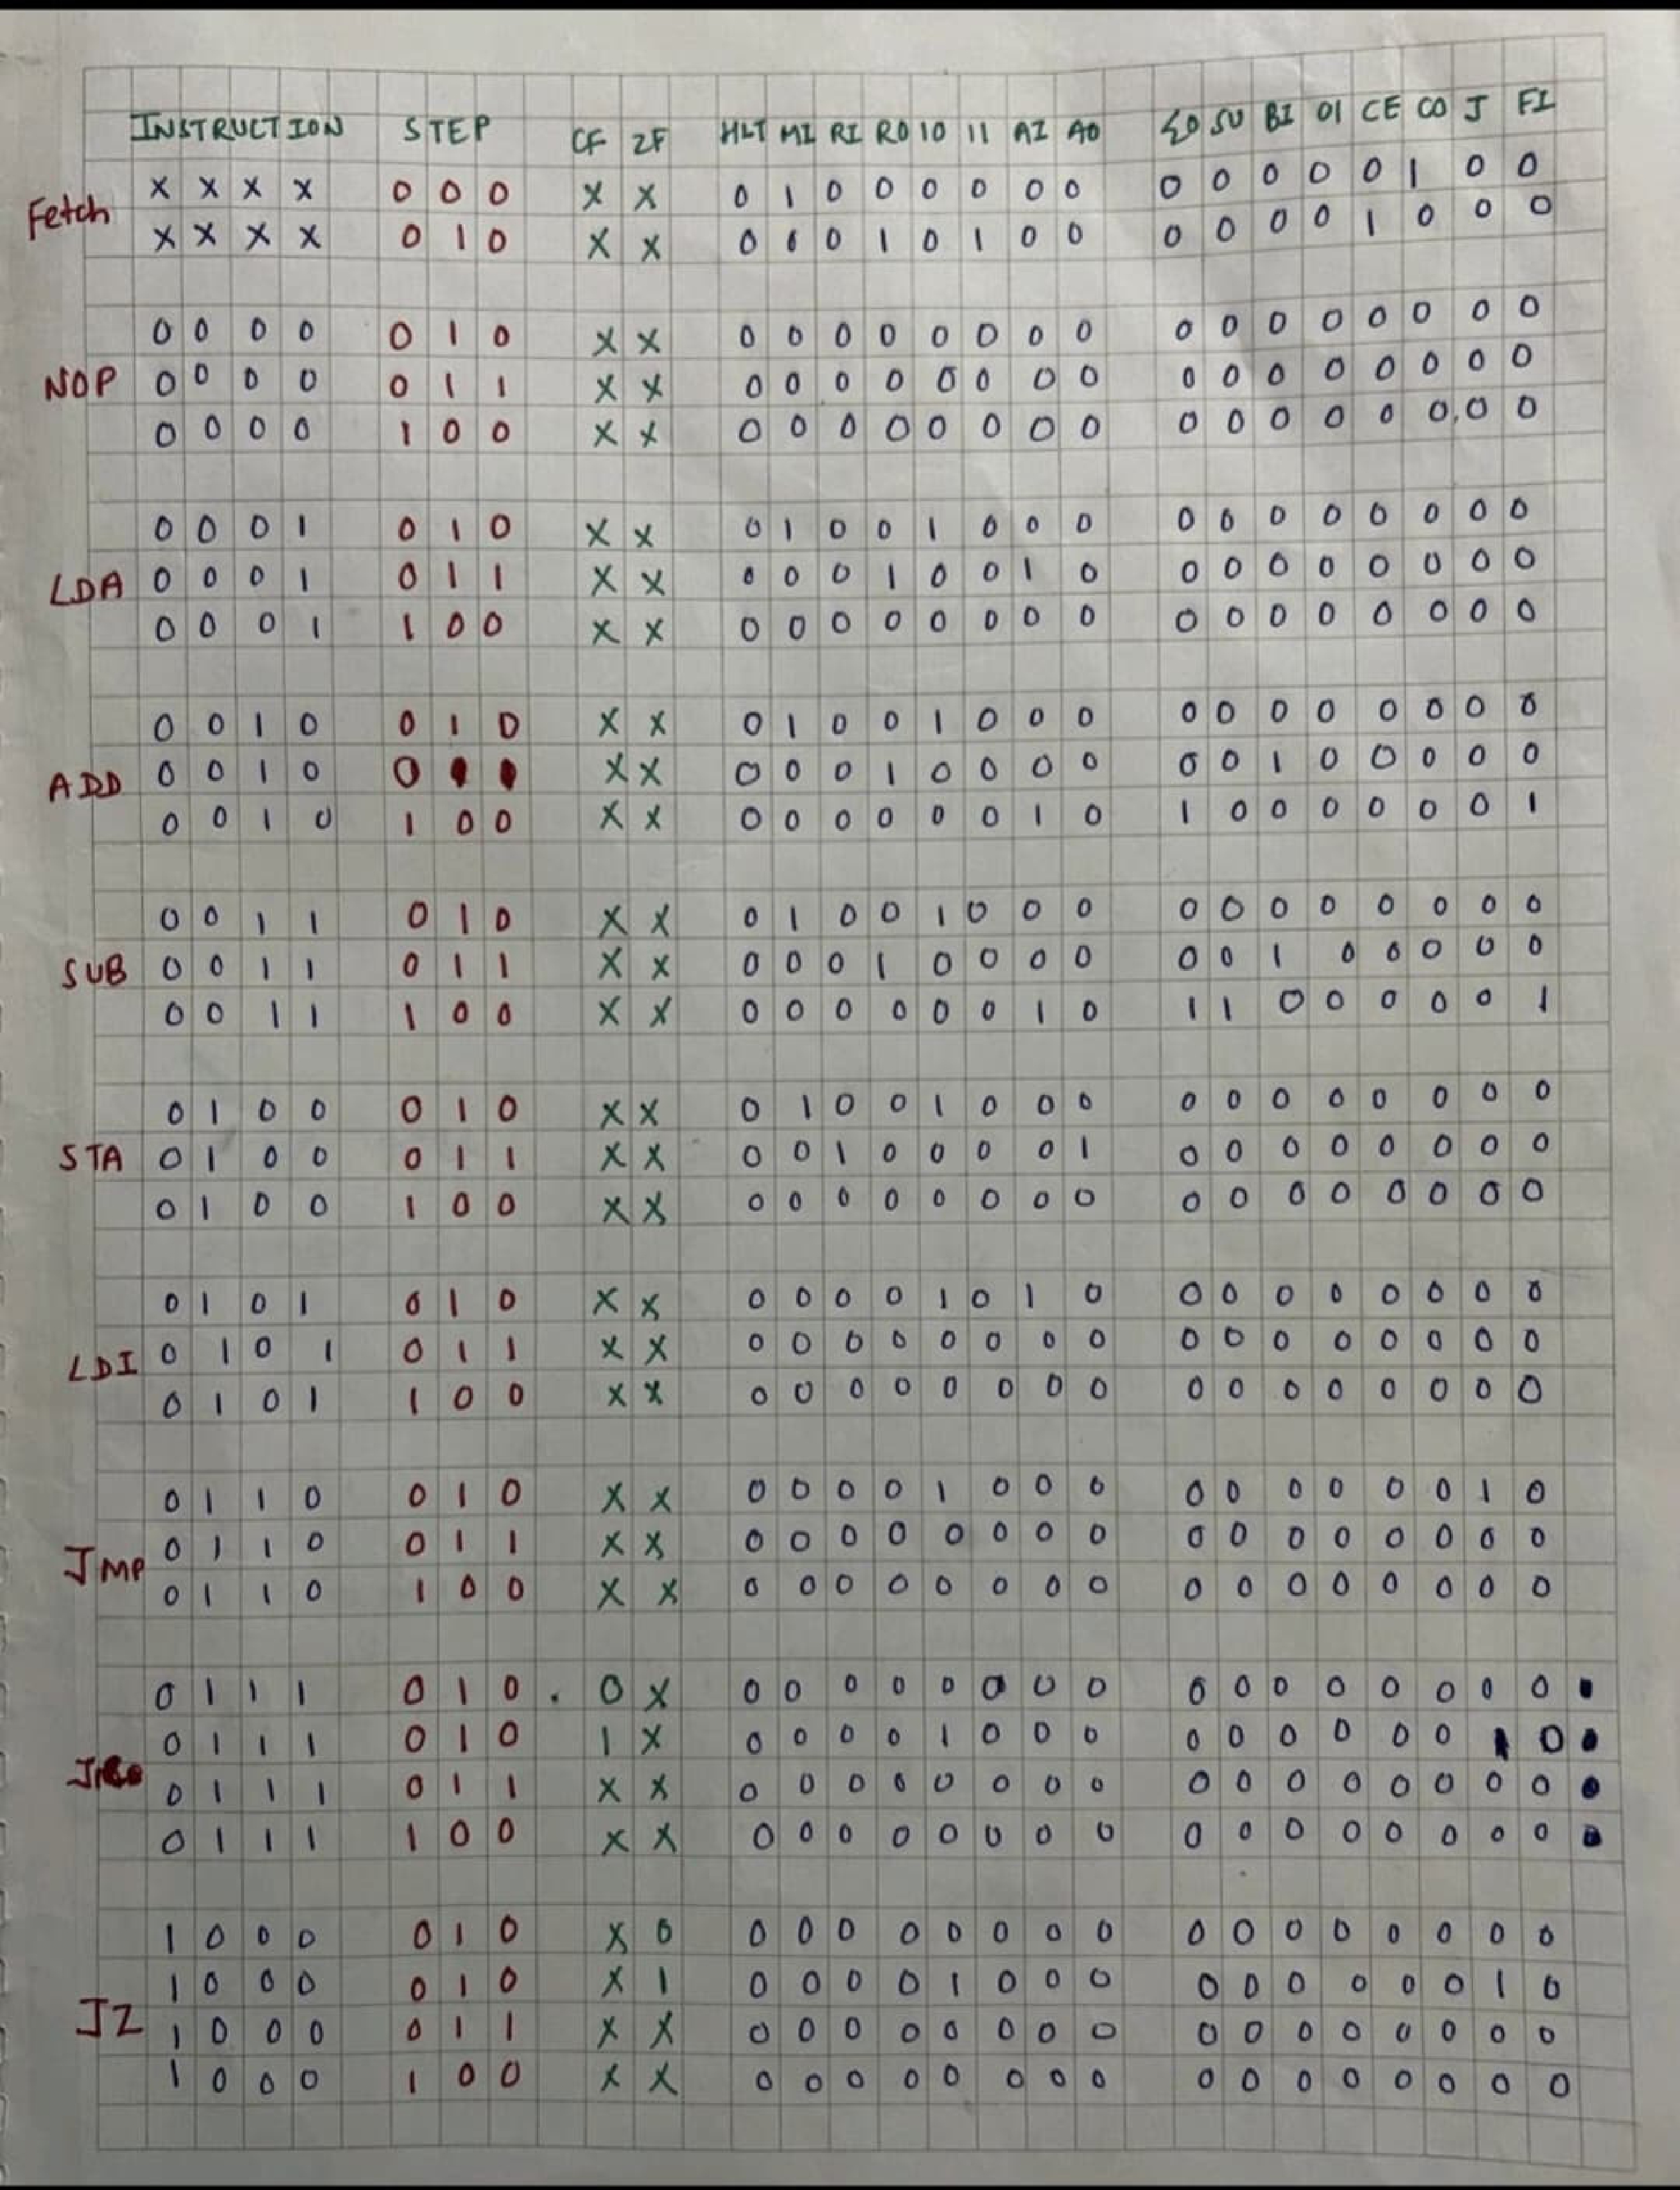 INSTRUCTION STEP CF ZF HLT MI RI RO IO II AI AO ΣO SU BI OI CE CO J FI
Fetch
X X X X 0 0 0 X X 0 1 0 0 0 0 0 0 0 0 0 0 0 1 0 0
X X X X 0 1 0 X X 0 0 0 1 0 1 0 0 0 0 0 0 1 0 0 0
NOP
0 0 0 0 0 1 0 X X 0 0 0 0 0 0 0 0 0 0 0 0 0 0 0 0
0 0 0 0 0 1 1 X X 0 0 0 0 0 0 0 0 0 0 0 0 0 0 0 0
0 0 0 0 1 0 0 X X 0 0 0 0 0 0 0 0 0 0 0 0 0 0 0 0
LDA
0 0 0 1 0 1 0 X X 0 1 0 0 1 0 0 0 0 0 0 0 0 0 0 0
0 0 0 1 0 1 1 X X 0 0 0 1 0 0 1 0 0 0 0 0 0 0 0 0
0 0 0 1 1 0 0 X X 0 0 0 0 0 0 0 0 0 0 0 0 0 0 0 0
ADD
0 0 1 0 0 1 0 X X 0 1 0 0 1 0 0 0 0 0 0 0 0 0 0 0
0 0 1 0 0 X X 0 0 0 1 0 0 0 0 0 0 1 0 0 0 0 0
0 0 1 0 1 0 0 X X 0 0 0 0 0 0 1 0 1 0 0 0 0 0 0 1
SUB
0 0 1 1 0 1 0 X X 0 1 0 0 1 0 0 0 0 0 0 0 0 0 0 0
0 0 1 1 0 1 1 X X 0 0 0 1 0 0 0 0 0 0 1 0 0 0 0 0
0 0 1 1 1 0 0 X X 0 0 0 0 0 0 1 0 1 1 0 0 0 0 0 1
STA
0 1 0 0 0 1 0 X X 0 1 0 0 1 0 0 0 0 0 0 0 0 0 0 0
0 1 0 0 0 1 1 X X 0 0 1 0 0 0 0 1 0 0 0 0 0 0 0 0
0 1 0 0 1 0 0 X X 0 0 0 0 0 0 0 0 0 0 0 0 0 0 0 0
LDI
0 1 0 1 0 1 0 X X 0 0 0 0 1 0 1 0 0 0 0 0 0 0 0 0
0 1 0 1 0 1 1 X X 0 0 0 0 0 0 0 0 0 0 0 0 0 0 0 0
0 1 0 1 1 0 0 X X 0 0 0 0 0 0 0 0 0 0 0 0 0 0 0 0
JMP
0 1 1 0 0 1 0 X X 0 0 0 0 1 0 0 0 0 0 0 0 0 0 1 0
0 1 1 0 0 1 1 X X 0 0 0 0 0 0 0 0 0 0 0 0 0 0 0 0
0 1 1 0 1 0 0 X X 0 0 0 0 0 0 0 0 0 0 0 0 0 0 0 0
0 1 1 1 0 1 0 . 0 X 0 0 0 0 0 0 0 0 0 0 0 0 0 0 0 0
0 1 1 1 0 1 0 1 X 0 0 0 0 1 0 0 0 0 0 0 0 0 0 1 0
0 1 1 1 0 1 1 X X 0 0 0 0 0 0 0 0 0 0 0 0 0 0 0 0
0 1 1 1 1 0 0 X X 0 0 0 0 0 0 0 0 0 0 0 0 0 0 0 0
JZ
1 0 0 0 0 1 0 X 0 0 0 0 0 0 0 0 0 0 0 0 0 0 0 0 0
1 0 0 0 0 1 0 X 1 0 0 0 0 1 0 0 0 0 0 0 0 0 0 1 0
1 0 0 0 0 1 1 X X 0 0 0 0 0 0 0 0 0 0 0 0 0 0 0 0
1 0 0 0 1 0 0 X X 0 0 0 0 0 0 0 0 0 0 0 0 0 0 0 0